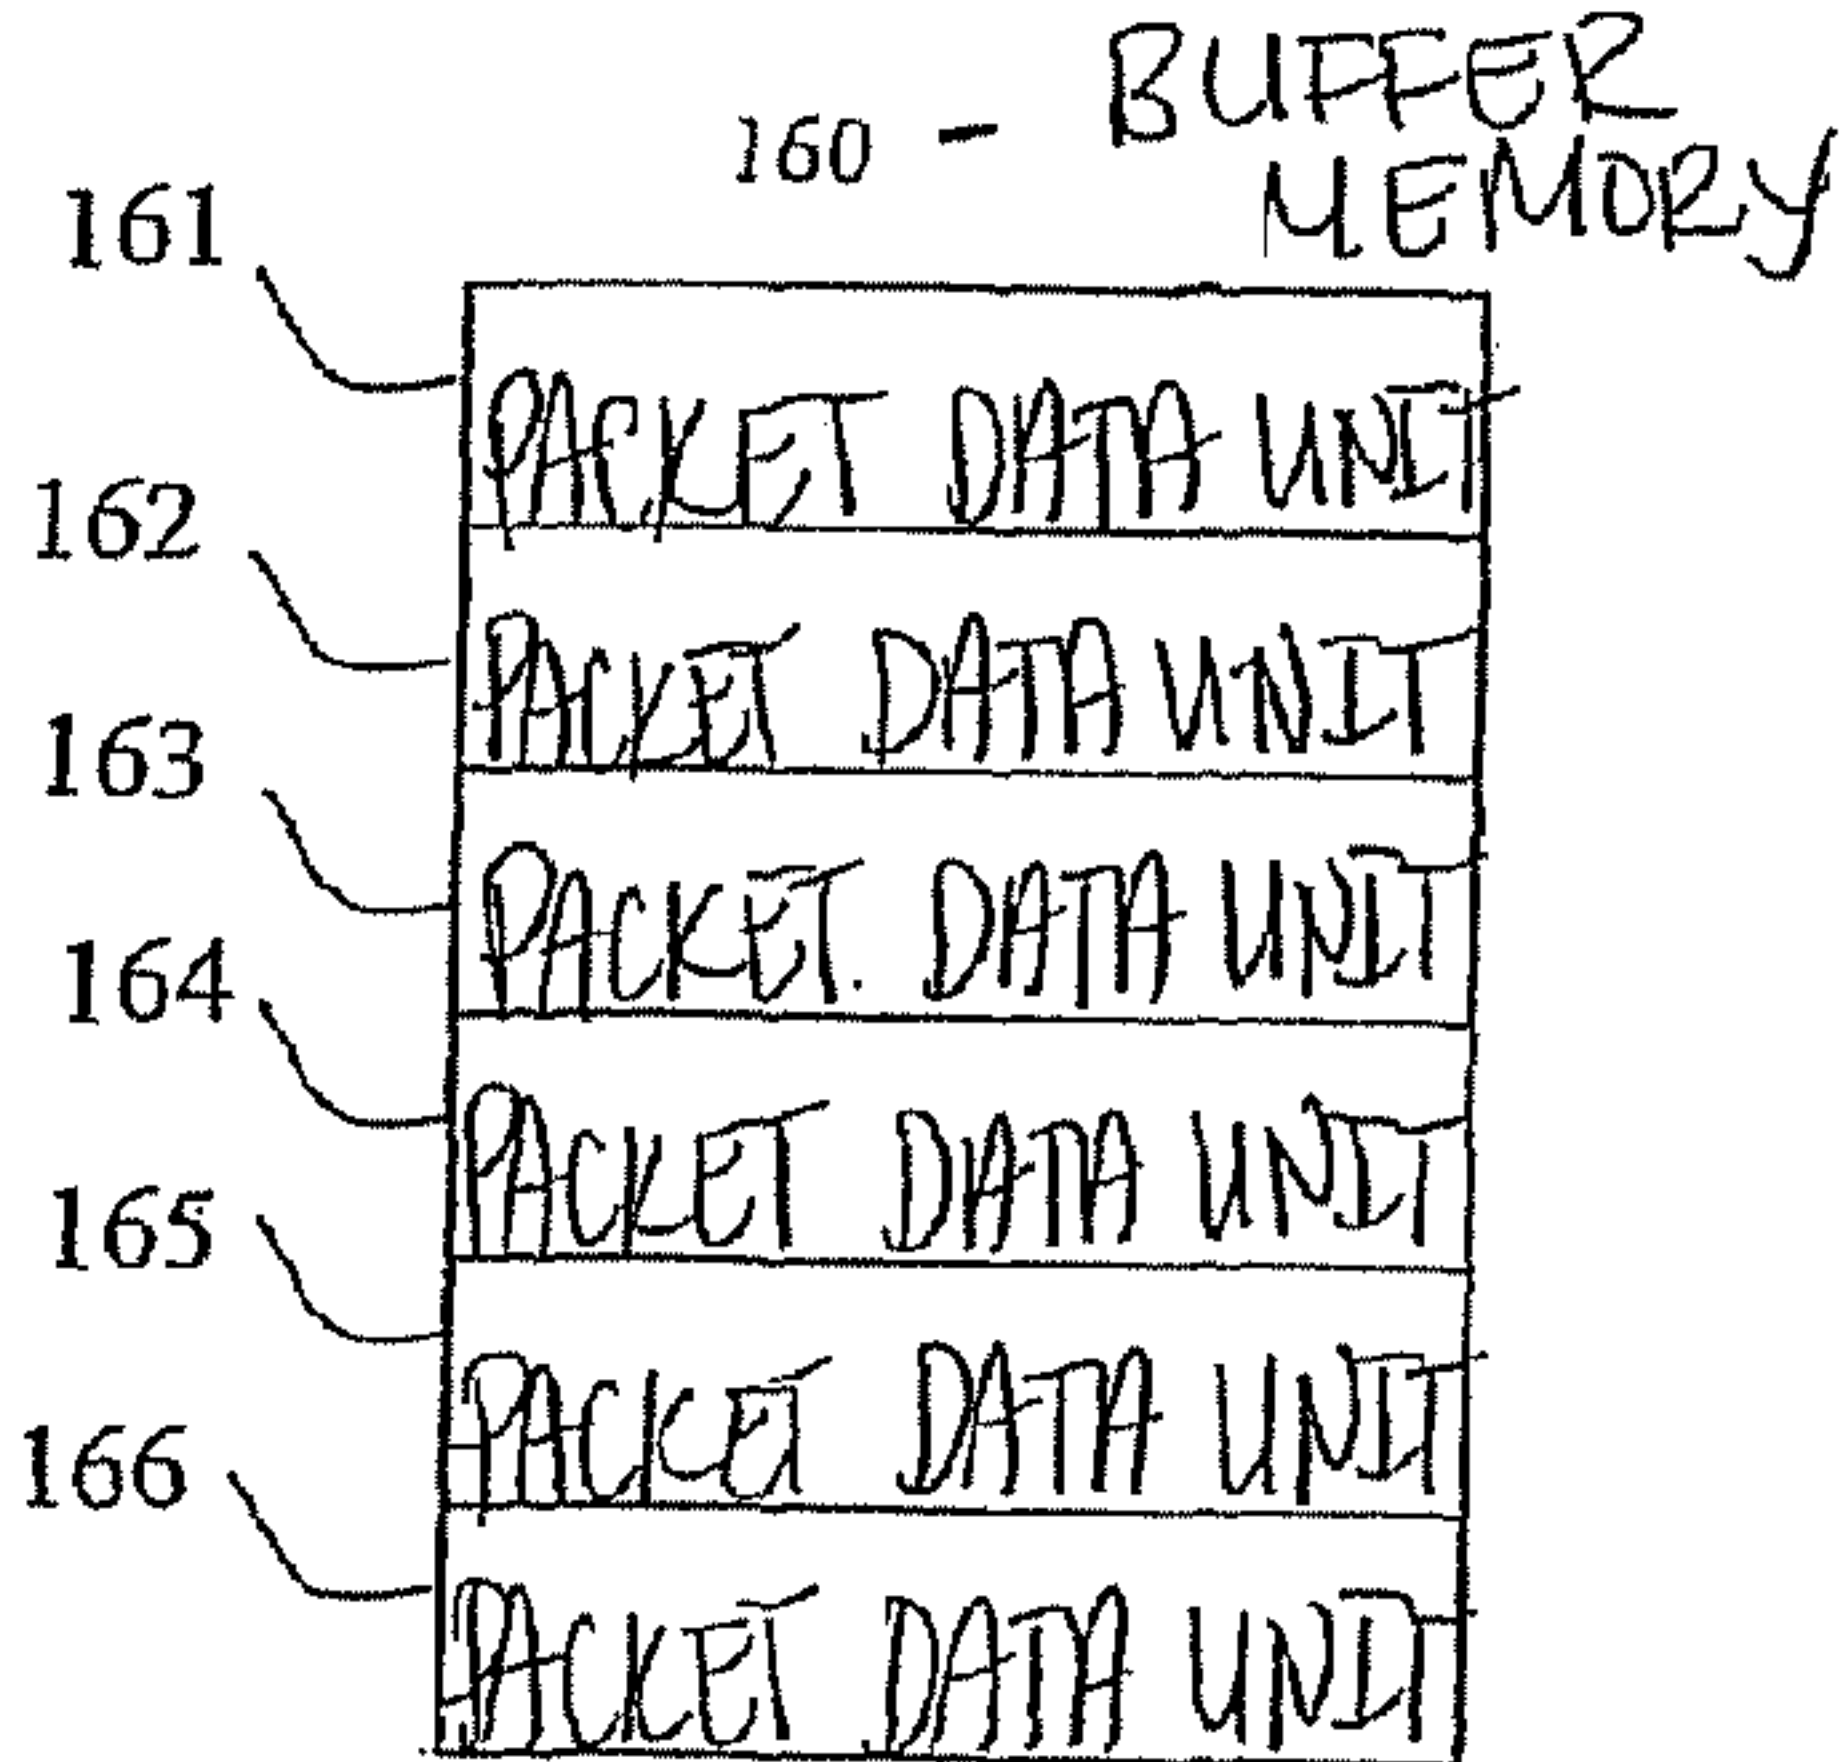 160 - BUFFER
MEMORY
161
PACKET DATA UNIT
162
PACKET DATA UNIT
163
PACKET DATA UNIT
164
PACKET DATA UNIT
165
PACKET DATA UNIT
166
PACKET DATA UNIT